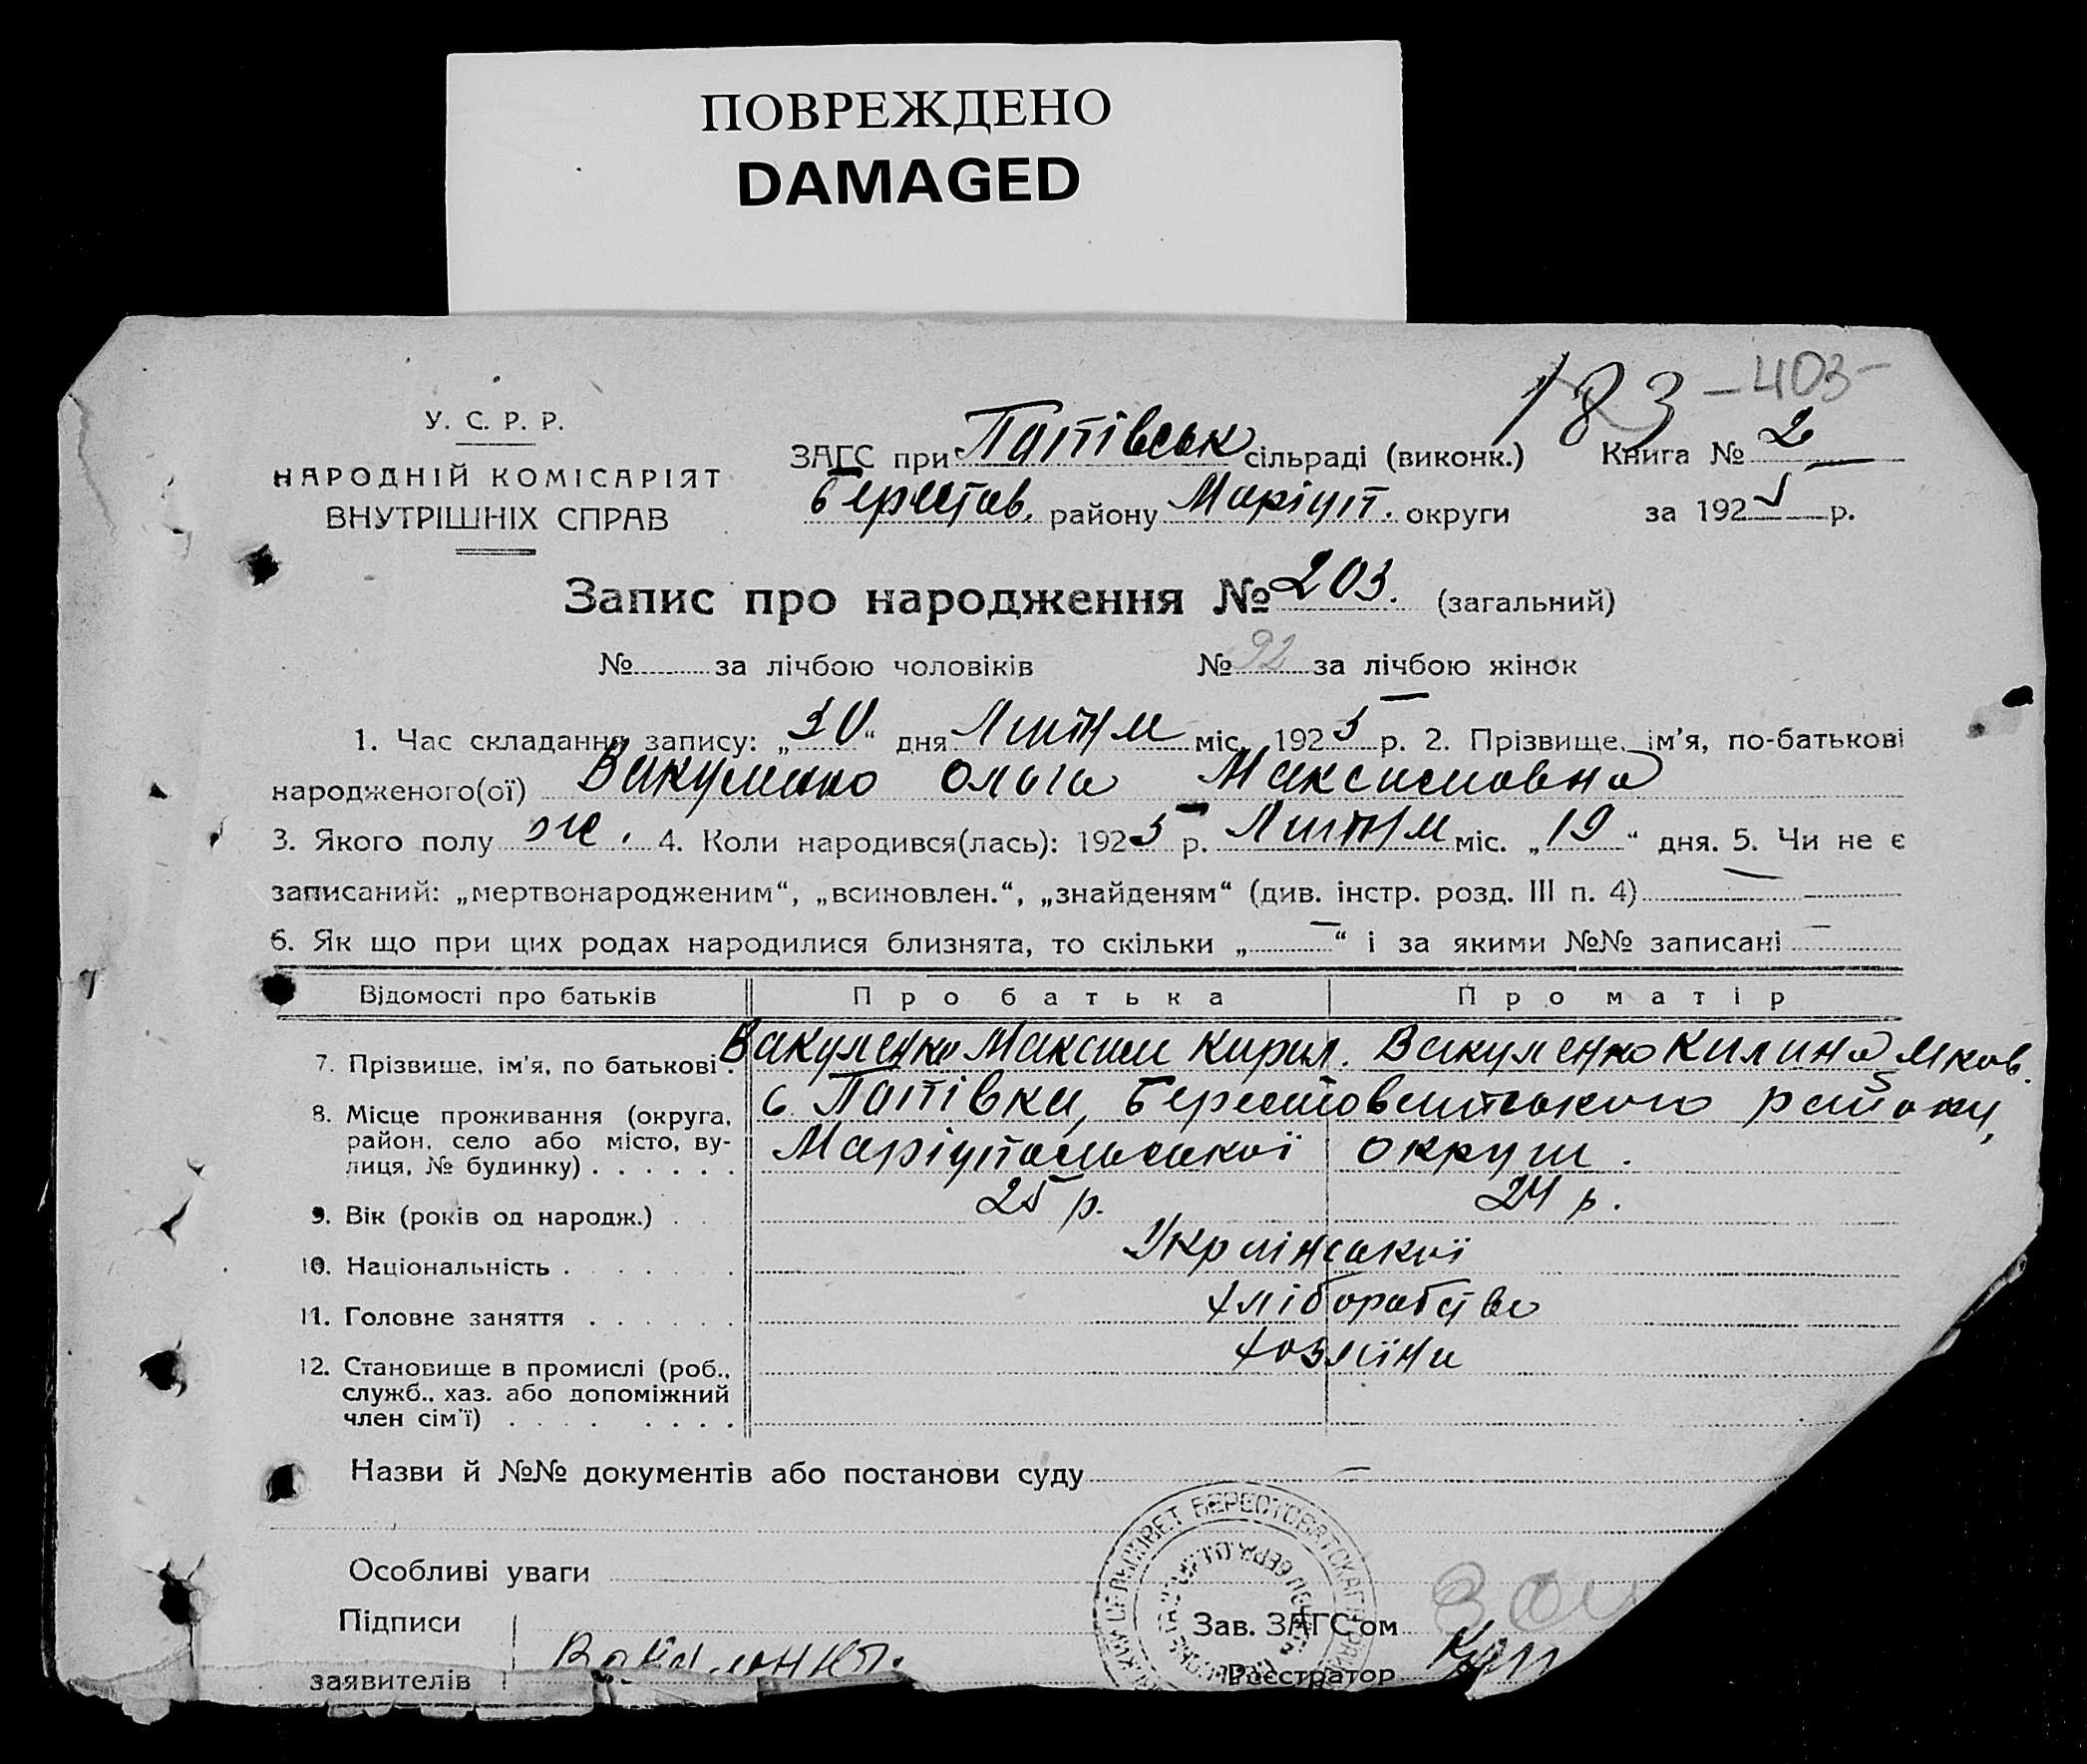 ПОВРЕЖДЕНО
DAMAGED
183 -403-
У. С. Р. Р.
НАРОДНІЙ КОМІСАРІЯТ
ВНУТРІШНІХ СПРАВ
ЗАГС при Попівськ сільраді (виконк.) Книга № 2
Берестов. району Маріуп. округи за 1925 р.
Запис про народження № 203. (загальний)
№ за лічбою чоловіків № 92 за лічбою жінок
1. Час складання запису: „30“ дня Липня міс. 1925 р. 2. Прізвище, ім’я, по-батькові
народженого(ої) Вакуленко Ольга Максимовна
3. Якого полу ж. 4. Коли народився(лась): 1925 р. Липня міс. „19“ дня. 5. Чи не є
записаний: „мертвонародженим“, „всиновлен.“, „знайденям“ (див. інстр. розд. III п. 4) —
6. Як що при цих родах народилися близнята, то скільки „—“ і за якими №№ записані —
Відомості про батьків Про батька Про матір
7. Прізвище, ім’я, по батькові. Вакуленко Максим Кирил. Вакуленко Килина Яков.
8. Місце проживання (округа, район, село або місто, вулиця, № будинку) с. Попівки, Берестоватського району,
Маріупольської округи.
9. Вік (років од народж.) 25 р. 24 р.
10. Національність Української
11. Головне заняття хліборобство
12. Становище в промислі (роб., служб., хаз. або допоміжний член сім’ї) хозяїни
Назви й №№ документів або постанови суду —
Особливі уваги
Підписи
заявителів Вакуленко.
Зав. ЗАГС’ом
Реєстратор
СЕЛЬСОВЕТ БЕРЕСТОВАТСКАГО РАЙ